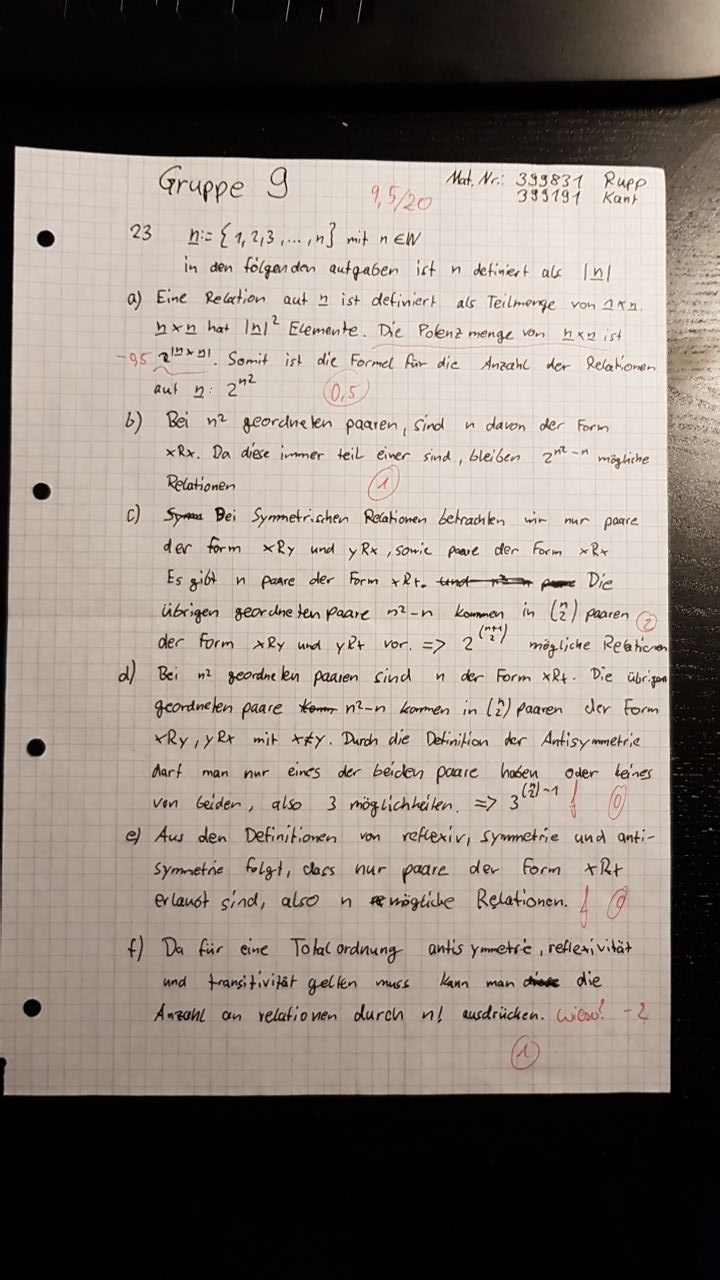 Gruppe 9
9,5/20
Mat. Nr.: 399831 Rupp
399191 Kant
23 n:= {1,2,3,...,n} mit n ∈ N
in den folgenden aufgaben ist n definiert als |n|
a) Eine Relation auf n ist definiert als Teilmenge von n×n.
n×n hat |n|² Elemente. Die Potenzmenge von n×n ist
-0,5 2^|n×n|. Somit ist die Formel für die Anzahl der Relationen
auf n: 2^n² 0,5
b) Bei n² geordneten paaren, sind n davon der Form
xRx. Da diese immer teil einer sind, bleiben 2^n²-n mögliche
Relationen 1
c) Bei Symmetrischen Relationen betrachten wir nur paare
der form xRy und yRx, sowie paare der Form xRx
Es gibt n paare der Form xRx. Die
übrigen geordneten paare n²-n kommen in (n 2) paaren 2
der Form xRy und yRx vor. => 2^(n+1 2) mögliche Relationen
d) Bei n² geordneten paaren sind n der Form xRx. Die übrigen
geordneten paare n²-n kommen in (n 2) paaren der Form
xRy, yRx mit x≠y. Durch die Definition der Antisymmetrie
darf man nur eines der beiden paare haben oder keines
von beiden, also 3 möglichkeiten. => 3^(n 2)-1 f 0
e) Aus den Definitionen von reflexiv, symmetrie und anti-
symmetrie folgt, dass nur paare der Form xRx
erlaubt sind, also n mögliche Relationen. f 0
f) Da für eine Totalordnung antisymmetrie, reflexivität
und transitivität gelten muss kann man die
Anzahl an relationen durch n! ausdrücken. wieso? -2
1